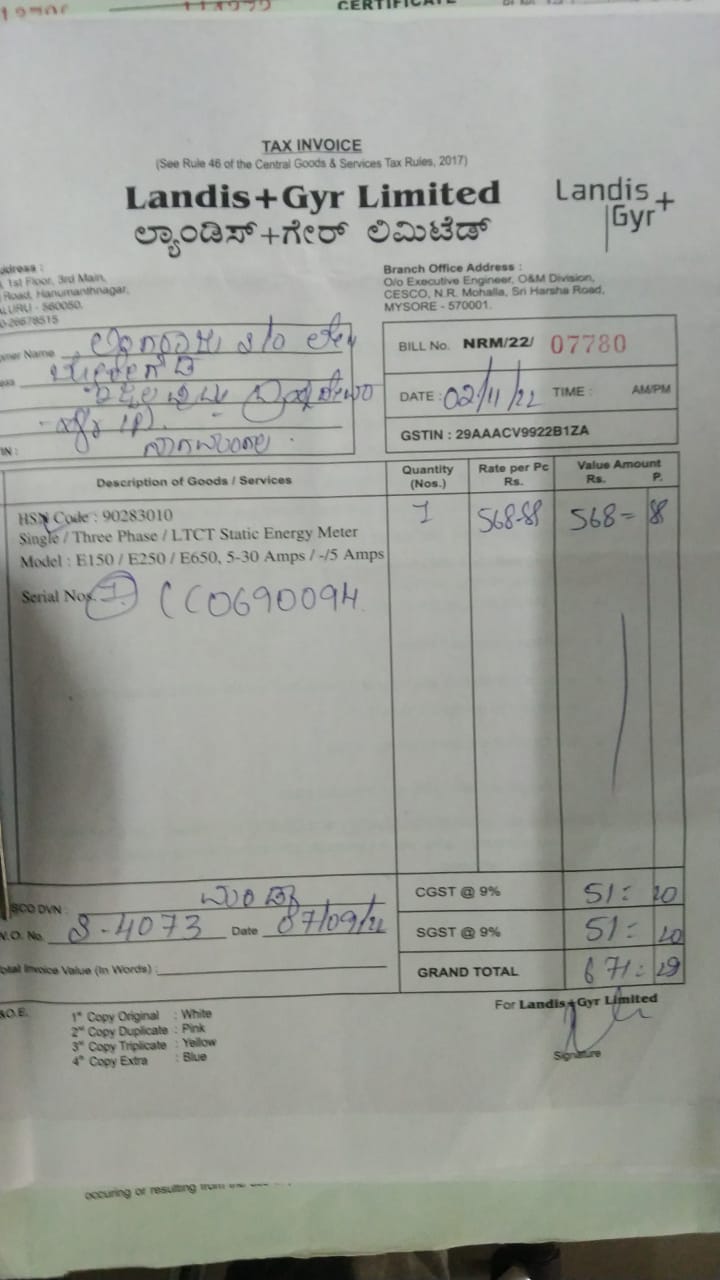 CERTIFICATE
TAX INVOICE
(See Rule 46 of the Central Goods & Services Tax Rules, 2017)
Landis+Gyr Limited
ಲ್ಯಾಂಡಿಸ್+ಗೇರ್ ಲಿಮಿಟೆಡ್
Landis+
Gyr
1st Floor, 3rd Main,
Road, Hanumanthnagar,
560050.
Branch Office Address :
O/o Executive Engineer, O&M Division,
CESCO, N.R. Mohalla, Sri Harsha Road,
MYSORE - 570001.
Name
BILL No. NRM/22/ 07780
DATE : 02/11/22 TIME : AM/PM
GSTIN : 29AAACV9922B1ZA
Description of Goods / Services
Quantity (Nos.)
Rate per Pc Rs.
Value Amount Rs. P.
HSN Code : 90283010
Single / Three Phase / LTCT Static Energy Meter
Model : E150 / E250 / E650, 5-30 Amps / -/5 Amps
1 568-88 568= 8
Serial Nos. 1 CC0690094
DVN :
CGST @ 9% 51=
No. S-4073 Date
SGST @ 9% 51=
Invoice Value (In Words) :
GRAND TOTAL 671=29
For Landis+Gyr Limited
Signature
1st Copy Original : White
2nd Copy Duplicate : Pink
3rd Copy Triplicate : Yellow
4th Copy Extra : Blue
occuring or resulting from the